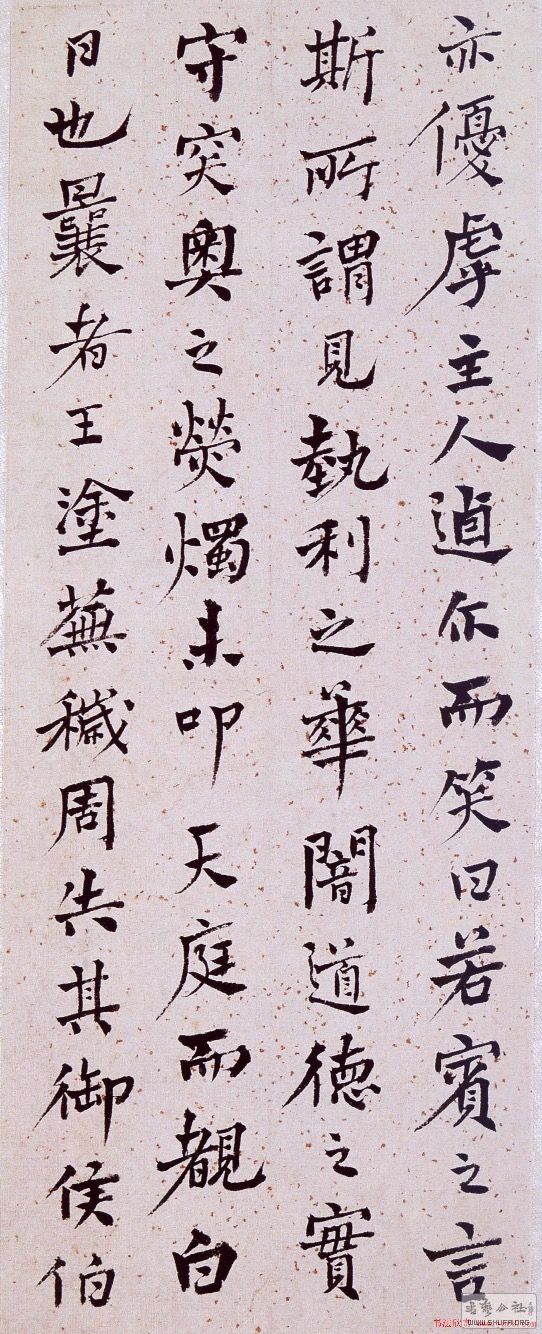 亦優虖主人逌尒而笑曰若賓之言
斯所謂見埶利之華闇道德之實
守突奧之熒燭未卬天庭而覩白
日也曩者王塗蕪穢周失其御侯伯
WWW.SHUFA.ORG